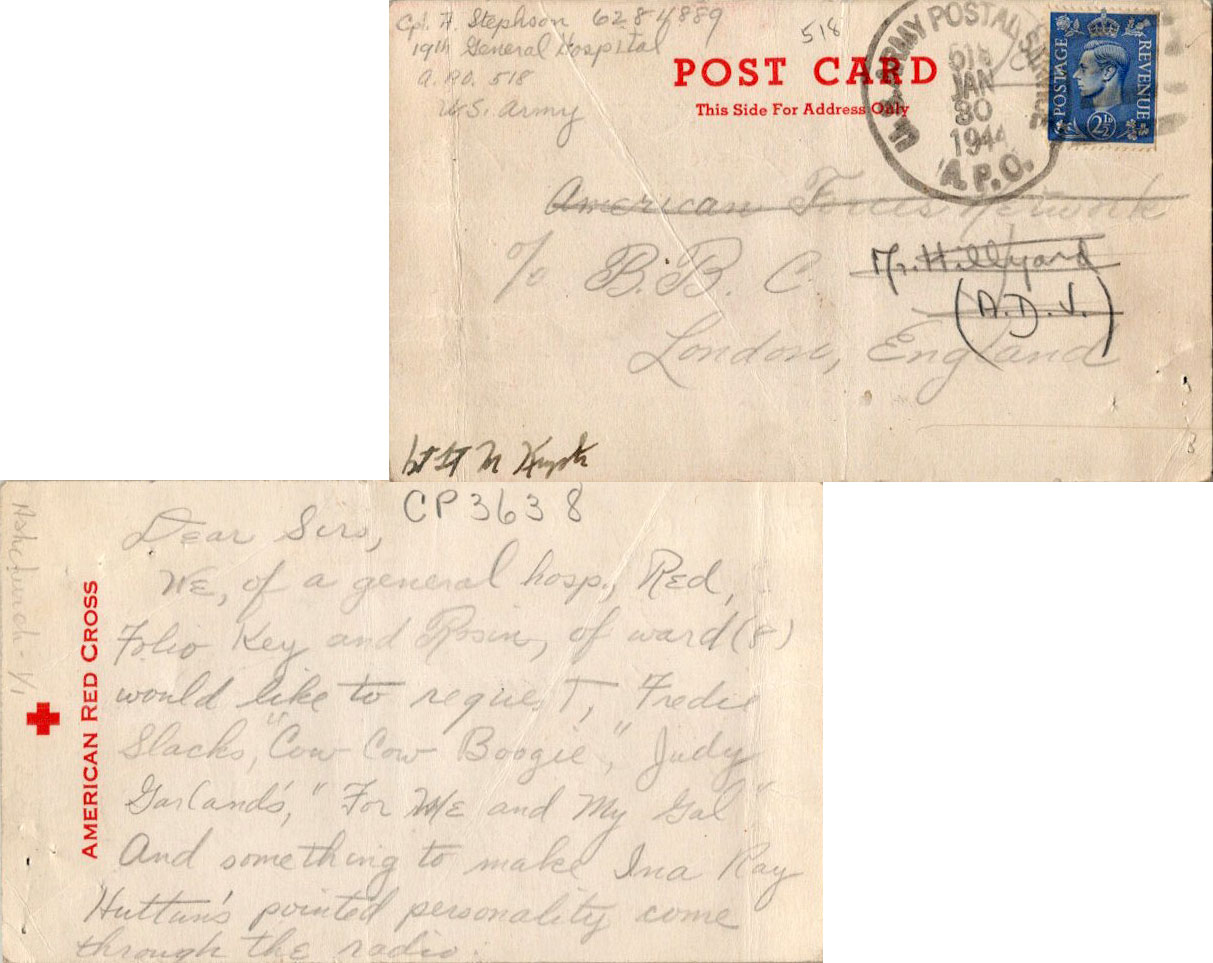 Cpl. F. Stephson 6284889
19th General Hospital
A.P.O. 518
U.S. Army
518
POST CARD
This Side For Address Only
U.S. ARMY POSTAL SERVICE
518
JAN
30
1944
A.P.O.
POSTAGE
REVENUE
2½D
American Forces Network
c/o B.B.C.
Mr. Hillyard
(A.D.V.)
London, England
1st Lt M
B
CP3638
Ashchurch - 1/1
AMERICAN RED CROSS
Dear Sirs,
WE, of a general hosp., Red,
Folio Key and Rosin, of ward (8)
would like to request, Fredie
Slacks, "Cow Cow Boogie", Judy
Garland's, "For ME and My Gal"
And something to make Ina Ray
Huttun's pointed personality come
through the radio.